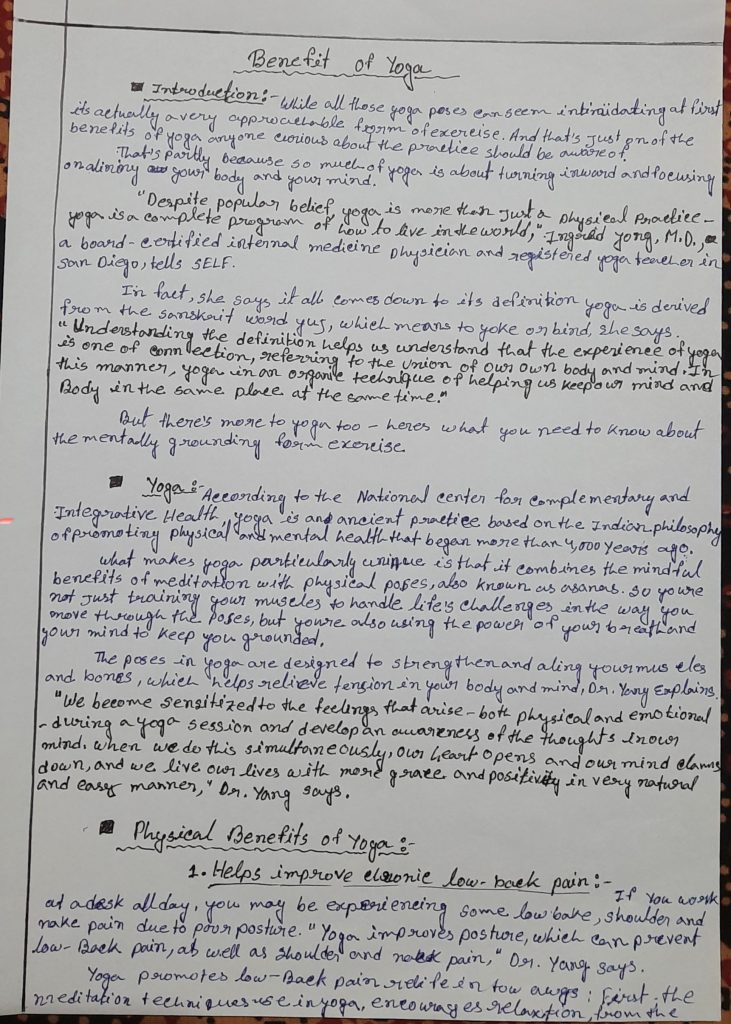 Benefit of Yoga
Introduction:- While all those yoga poses can seem intimidating at first
its actually a very approachable form of exercise. And that's just on of the
benefits of yoga anyone curious about the practice should be aware of.
That's partly because so much of yoga is about turning inward and focusing
on alining your body and your mind.
"Despite popular belief, yoga is more than Just a physical practice -
yoga is a complete program of how to live in the world," Ingrid Yong, M.D.,
a board-certified internal medicine physician and registered yoga teacher in
San Diego, tells SELF.
In fact, she says it all comes down to its definition yoga is derived
from the sanskrit word yug, which means to yoke or bind, she says.
"Understanding the definition helps us understand that the experience of yoga
is one of connection, referring to the union of our own body and mind. In
this manner, yoga in an organic technique of helping us keep our mind and
Body in the same place at the same time."
But there's more to yoga too - heres what you need to know about
the mentally grounding form exercise.
Yoga:- According to the National center for complementary and
Integrative Health, yoga is and ancient practice based on the Indian philosophy
of promoting physical and mental health that began more than 4,000 years ago.
what makes yoga particularly unique is that it combines the mindful
benefits of meditation with physical poses, also known as asanas. So youre
not just training your muscles to handle life's challenges in the way you
move through the poses, but youre also using the power of your breath and
your mind to keep you grounded.
The poses in yoga are designed to strengthen and aling your muscles
and bones, which helps relieve tension in your body and mind, Dr. Yang explains.
"We become sensitized to the feelings that arise - both physical and emotional
- during a yoga session and develop an awareness of the thoughts in our
mind. when we do this simultaneously, our heart opens and our mind clams
down, and we live our lives with more grace and positivity in very natural
and easy manner," Dr. Yang says.
Physical Benefits of Yoga:-
1. Helps improve chronic low-back pain:-
If You work
at a desk all day, you may be experiencing some low bake, shoulder and
nake pain due to poor posture. "Yoga improves posture, which can prevent
low-Back pain, as well as shoulder and neck pain," Dr. Yang says.
Yoga promotes low-Back pain relife in tow awgs: First, the
meditation techniques use in yoga, encourages relaxtion, from the